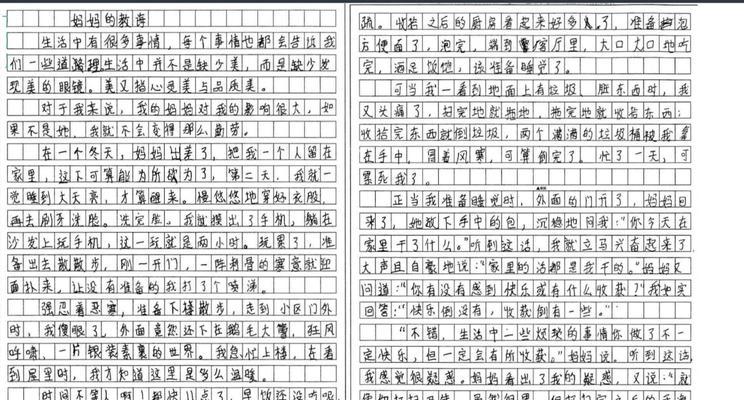 妈妈的教诲
生活中有很多事情，每个事情也都会告诉我
们一些道理生活中并不是缺少美，而是缺少发
现美的眼镜。美又指心灵美与品质美。
对于我来说，我的妈妈对我的影响很大，如
果不是她，我就不会变得那么勤劳。
在一个冬天，妈妈出差了，把我一个人留在
家里，这下可算能为所欲为了，第二天，我就一
觉睡到大天亮，才算醒来。慢悠悠地穿好衣服，
再去刷牙洗脸。洗完脸。我就摸出了手机，躺在
沙发上玩手机，这一玩就是两小时。玩累了，准
备出去散散步，刚一开们，一阵刺骨的寒意就迎
面扑来，让没有准备的我打了个喷涕。
强忍着恶寒，准备下楼散步，走到小区门外
时，我傻眼了，外面竟然还下在鹅毛大雪，狂风
呼啸，一片银装素裹的世界。我急忙上楼，在看
到屋里时，我才知道这里是多么温暖。
时间不等人啊！都快11点了，早饭还没吃呢
疏。收拾之后的厨房看起来好多了，准备
方便面了，泡完，端到客厅里，大口大口地吃
完，酒足饭饱，该准备睡觉了。
可当我一看到地面上有垃圾、脏东西时，我
又头痛了，扫完地就拖地，拖完地就收拾东西：
收拾完东西就倒垃圾，两个满满的垃圾桶被我拿
在手中。冒着风寒，可算倒完了。忙了一天，可
累死我了。
正当我准备睡觉时，外面的门开了，妈妈回
来了，她放下手中的包，沉稳地问我：“你今天在
家里干了什么。”听到这话，我就立马兴奋起来了
大声且自豪地说：“家里的活都是我干的。”妈妈又
问道：“你有没有感到快乐或有什么收获？”我如实
回答：“快乐倒没有，收获倒有一些。”
“不错，生活中一些烦琐的事情你做了不一
定快乐，但一定会有所收获。”妈妈说。听到这话
我感觉很疑惑。妈妈看出了我的疑惑，又说：“就